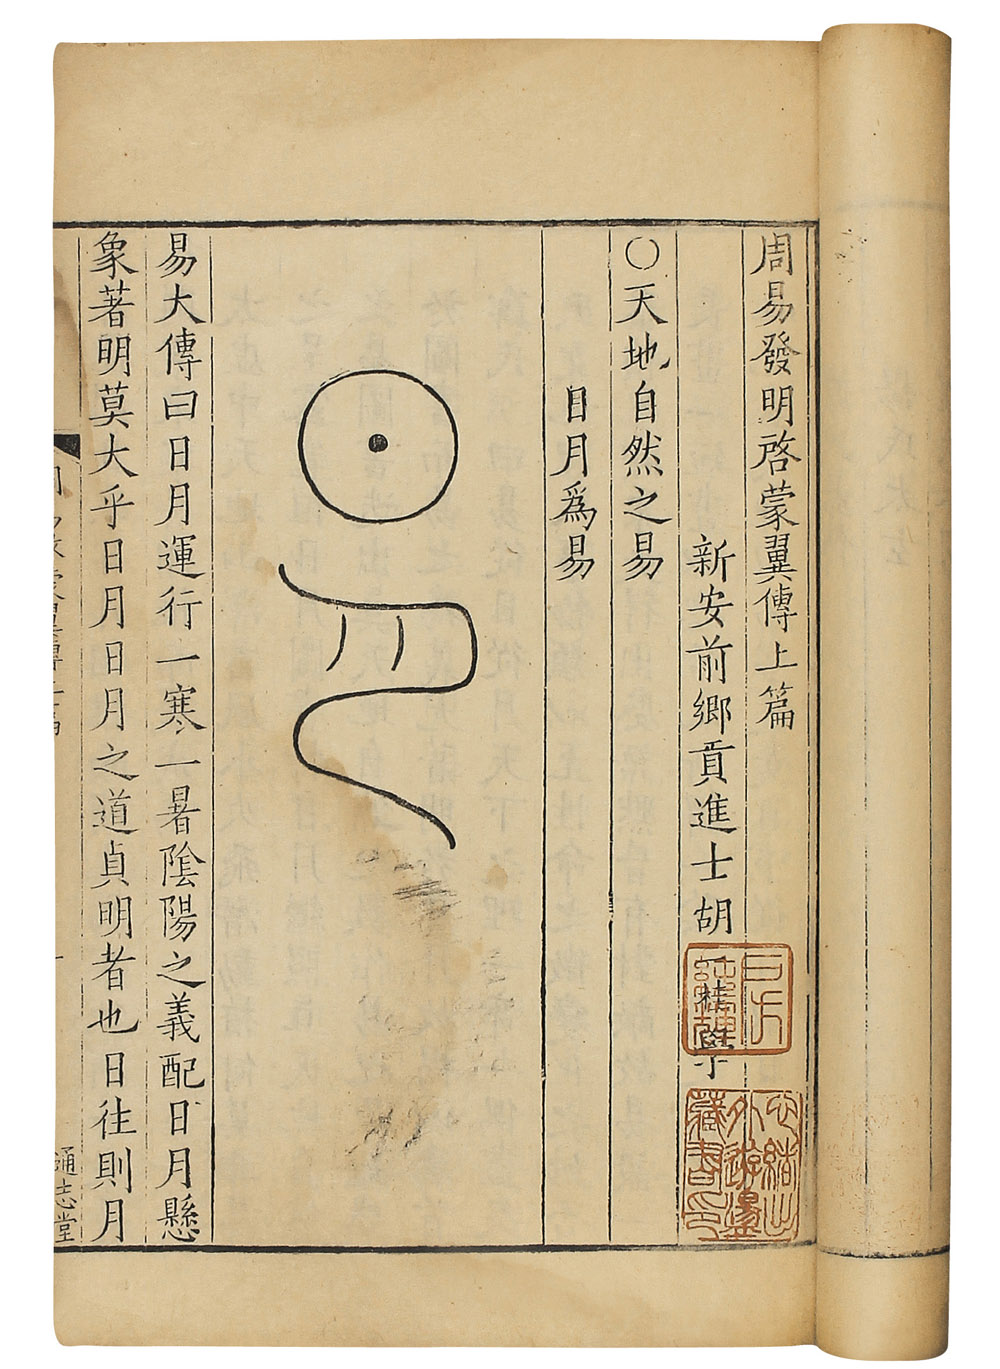 周易發明啓蒙翼傳上篇
新安前鄉貢進士胡一桂學
〇天地自然之易
日月爲易
易大傳曰日月運行一寒一暑陰陽之義配日月懸
象著明莫大乎日月日月之道貞明者也日往則月
通志堂